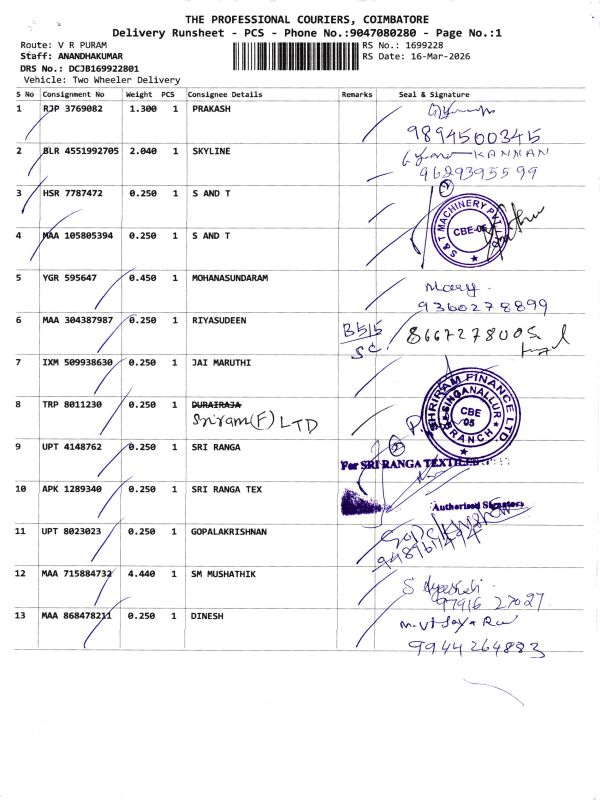 THE PROFESSIONAL COURIERS, COIMBATORE
Delivery Runsheet - PCS - Phone No.:9047080280 - Page No.:1
Route: V R PURAM
RS No.: 1699228
Staff: ANANDHAKUMAR
RS Date: 16-Mar-2026
DRS No.: DCJB169922801
Vehicle: Two Wheeler Delivery
S No Consignment No Weight PCS Consignee Details Remarks Seal & Signature
1 RJP 3769082 1.300 1 PRAKASH
9894500345
2 BLR 4551992705 2.040 1 SKYLINE KANNAN
9629395599
3 HSR 7787472 0.250 1 S AND T
S & T MACHINERY PVT
CBE-05
4 MAA 105805394 0.250 1 S AND T
5 YGR 595647 0.450 1 MOHANASUNDARAM Mary.
9360278899
6 MAA 304387987 0.250 1 RIYASUDEEN B515 8667278005
SC
7 IXM 509938630 0.250 1 JAI MARUTHI
8 TRP 8011230 0.250 1 DURAIRAJA
Sriram(F) LTD
SHRIRAM FINANCE LTD
SINGANALLUR
CBE
05
BRANCH
9 UPT 4148762 0.250 1 SRI RANGA
For SRI RANGA TEXTILES
10 APK 1289340 0.250 1 SRI RANGA TEX
Authorised Signatory
11 UPT 8023023 0.250 1 GOPALAKRISHNAN
12 MAA 715884732 4.440 1 SM MUSHATHIK
97916 27027
13 MAA 868478211 0.250 1 DINESH
9944264883